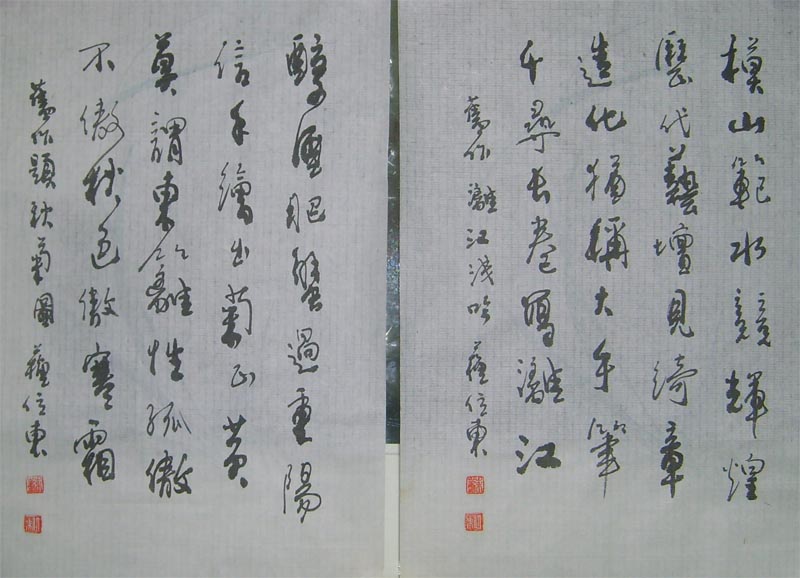 模山範水競輝煌
歷代藝壇見綺章
造化猶稱大手筆
千尋長卷寫灕江
舊作灕江淺吟 蘇信東
醇酒肥蟹過重陽
信手繪出菊正黃
莫謂東籬性孤傲
不傲秋色傲寒霜
舊作題秋菊圖 蘇信東